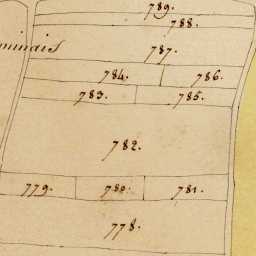 789.
788.
minais
787.
784. 786.
783. 785.
782.
779. 780. 781.
778.